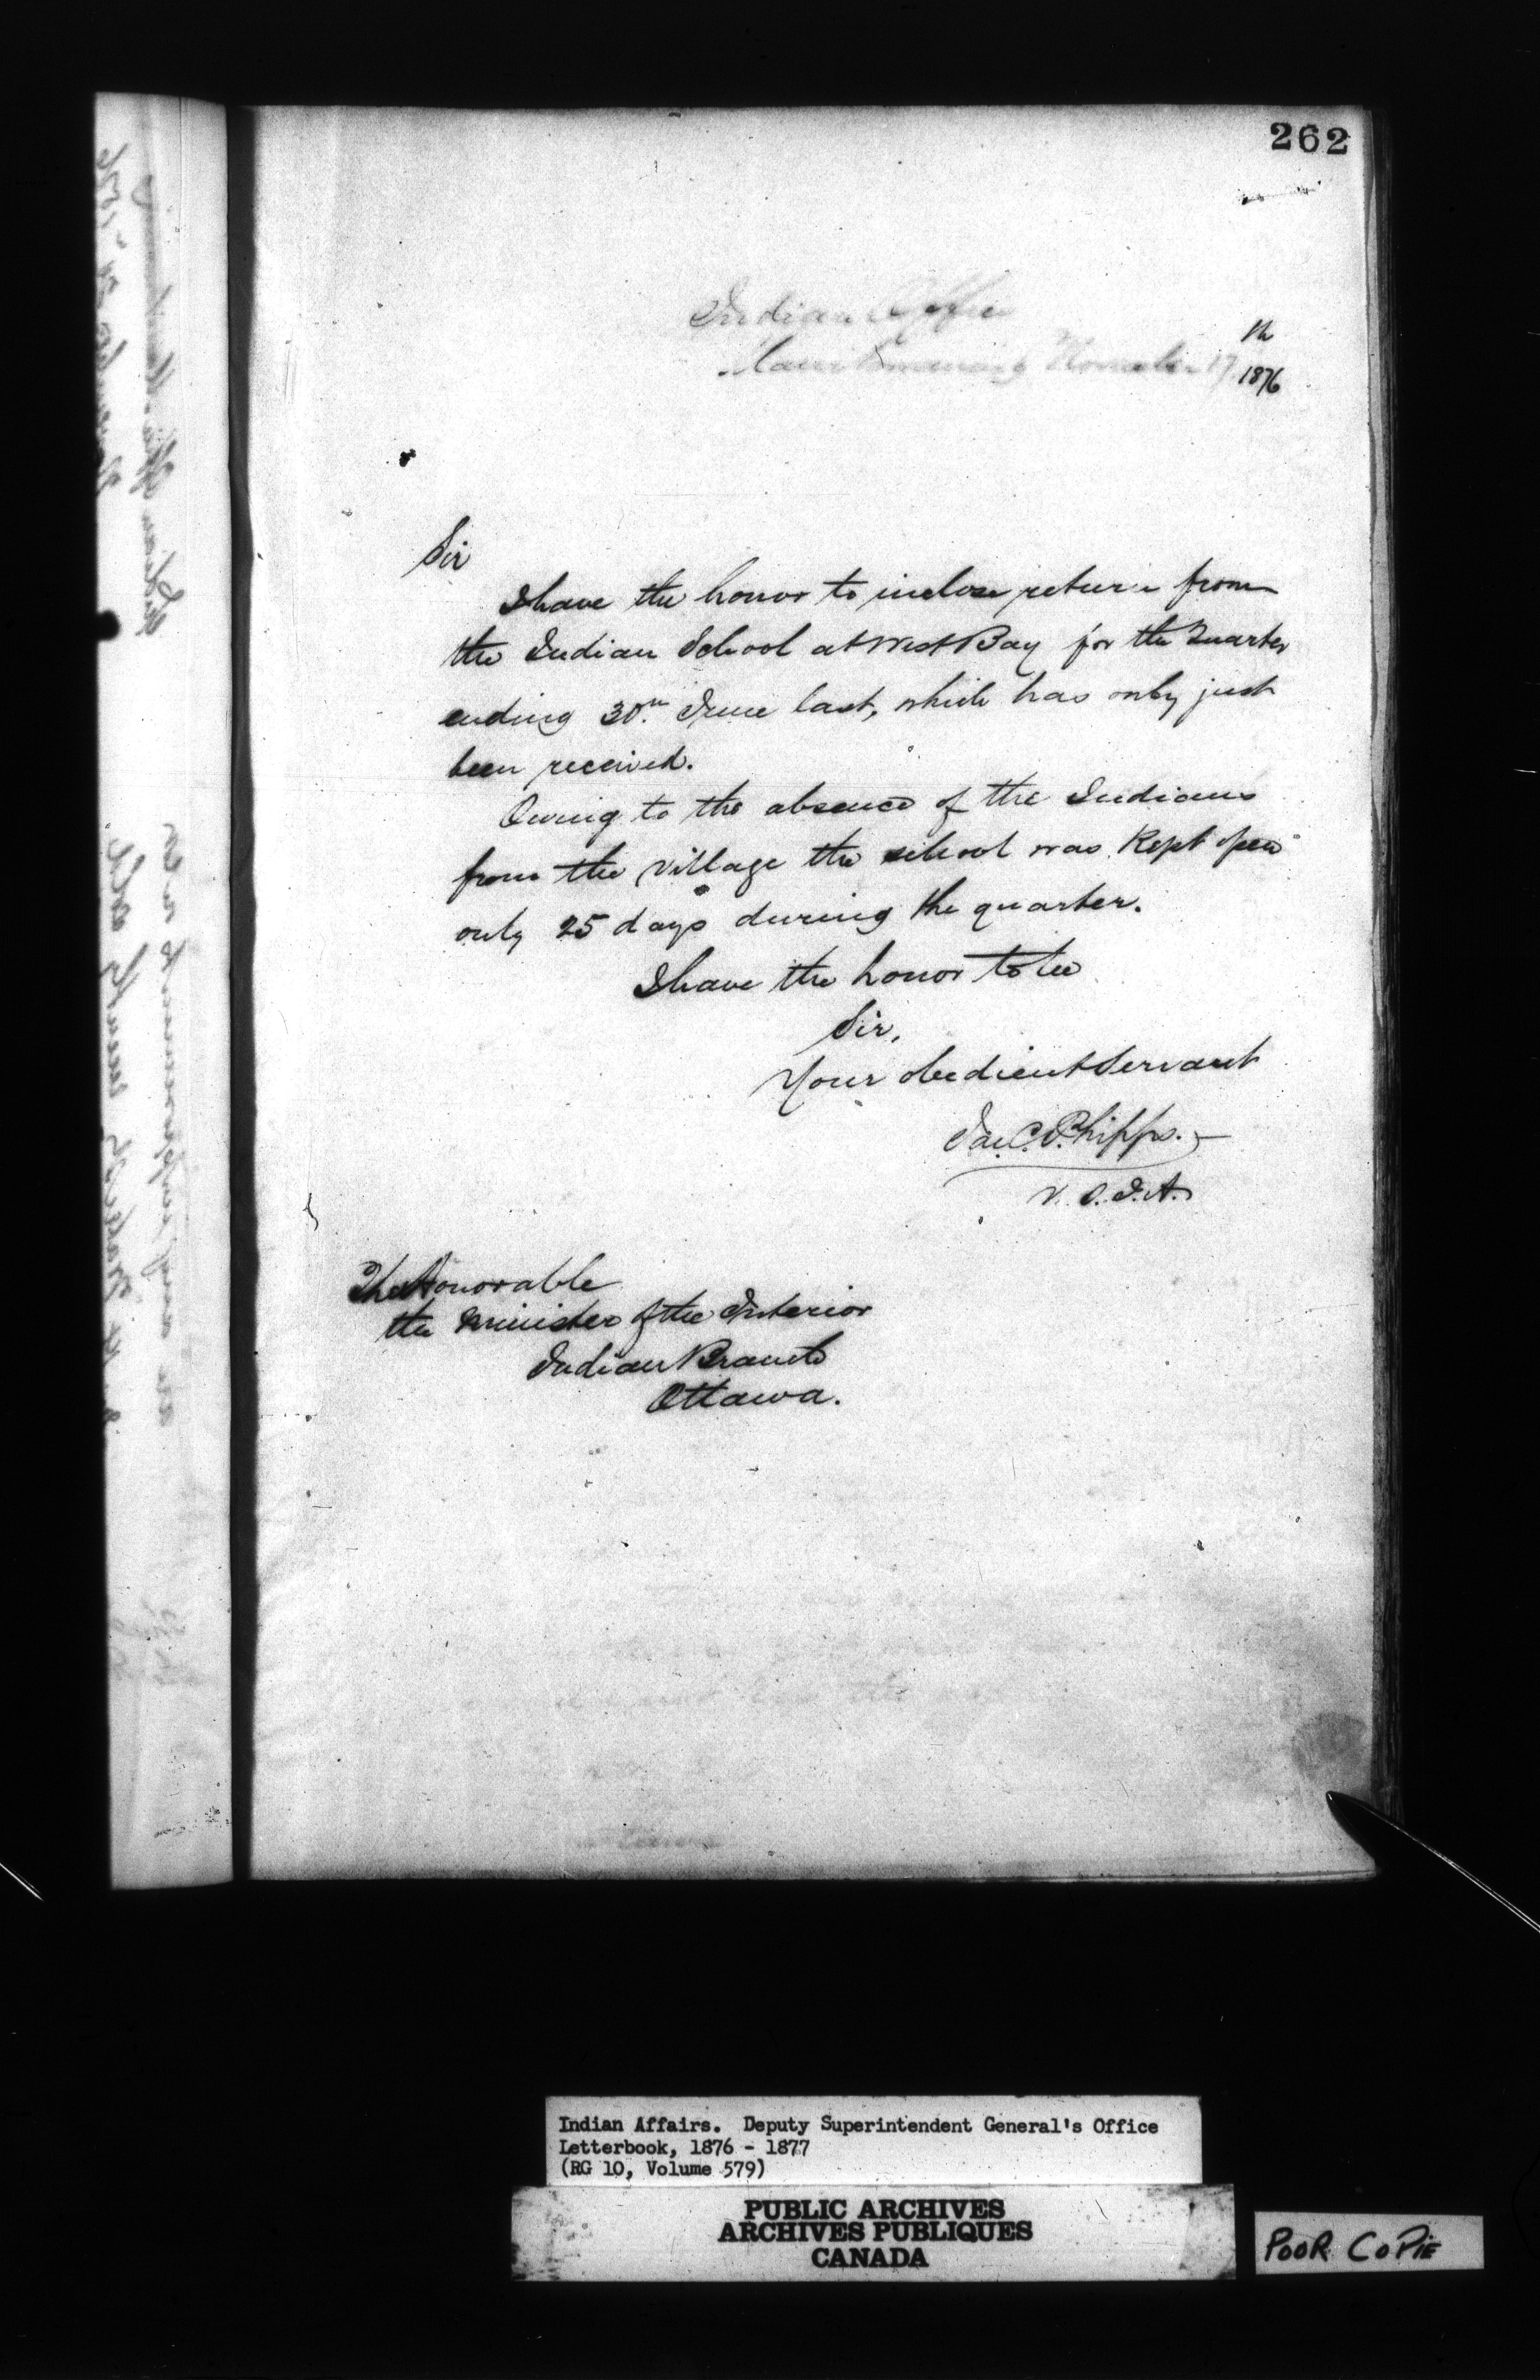 262
Indian Office
Manitowaning November 17th 1876
Sir
I have the honor to inclose return from
the Indian School at West Bay for the Quarter
ending 30th June last, which has only just
been received.
Owing to the absence of the Indians
from the village the school was Kept open
only 25 days during the quarter.
I have the honor to be
Sir,
Your obedient Servant
Jas. C. Phipps.
V. S. I. A.
The Honorable
the Minister of the Interior
Indian Branch
Ottawa.
Indian Affairs. Deputy Superintendent General's Office
Letterbook, 1876 - 1877
(RG 10, Volume 579)
PUBLIC ARCHIVES
ARCHIVES PUBLIQUES
CANADA
POOR COPIE